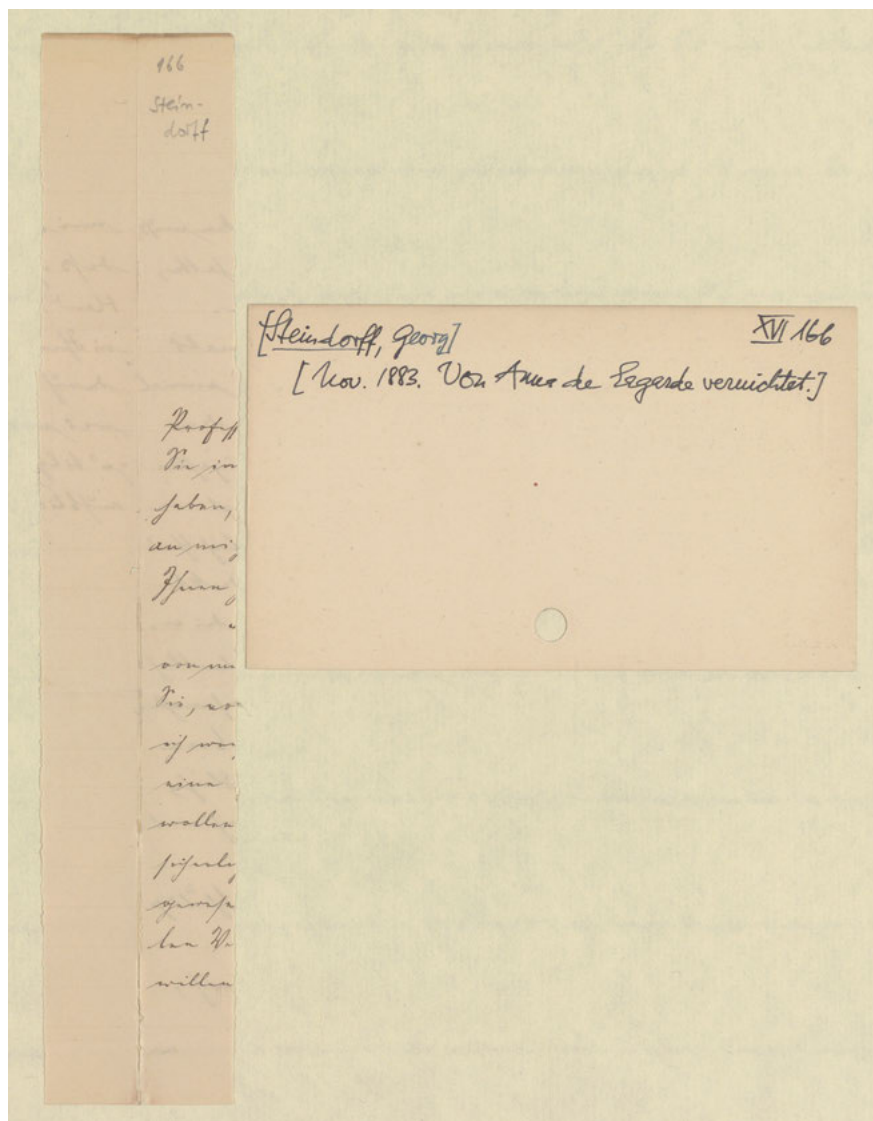 166
Stein-
dorff
[Steindorff, Georg]
XVI 166
[Nov. 1883. Von Anna de Lagarde vernichtet.]
Profess
Sie in
haben,
an mi
Ihnen
von
Sie,
ich
eine
wollen
gewese
len Ve
willen